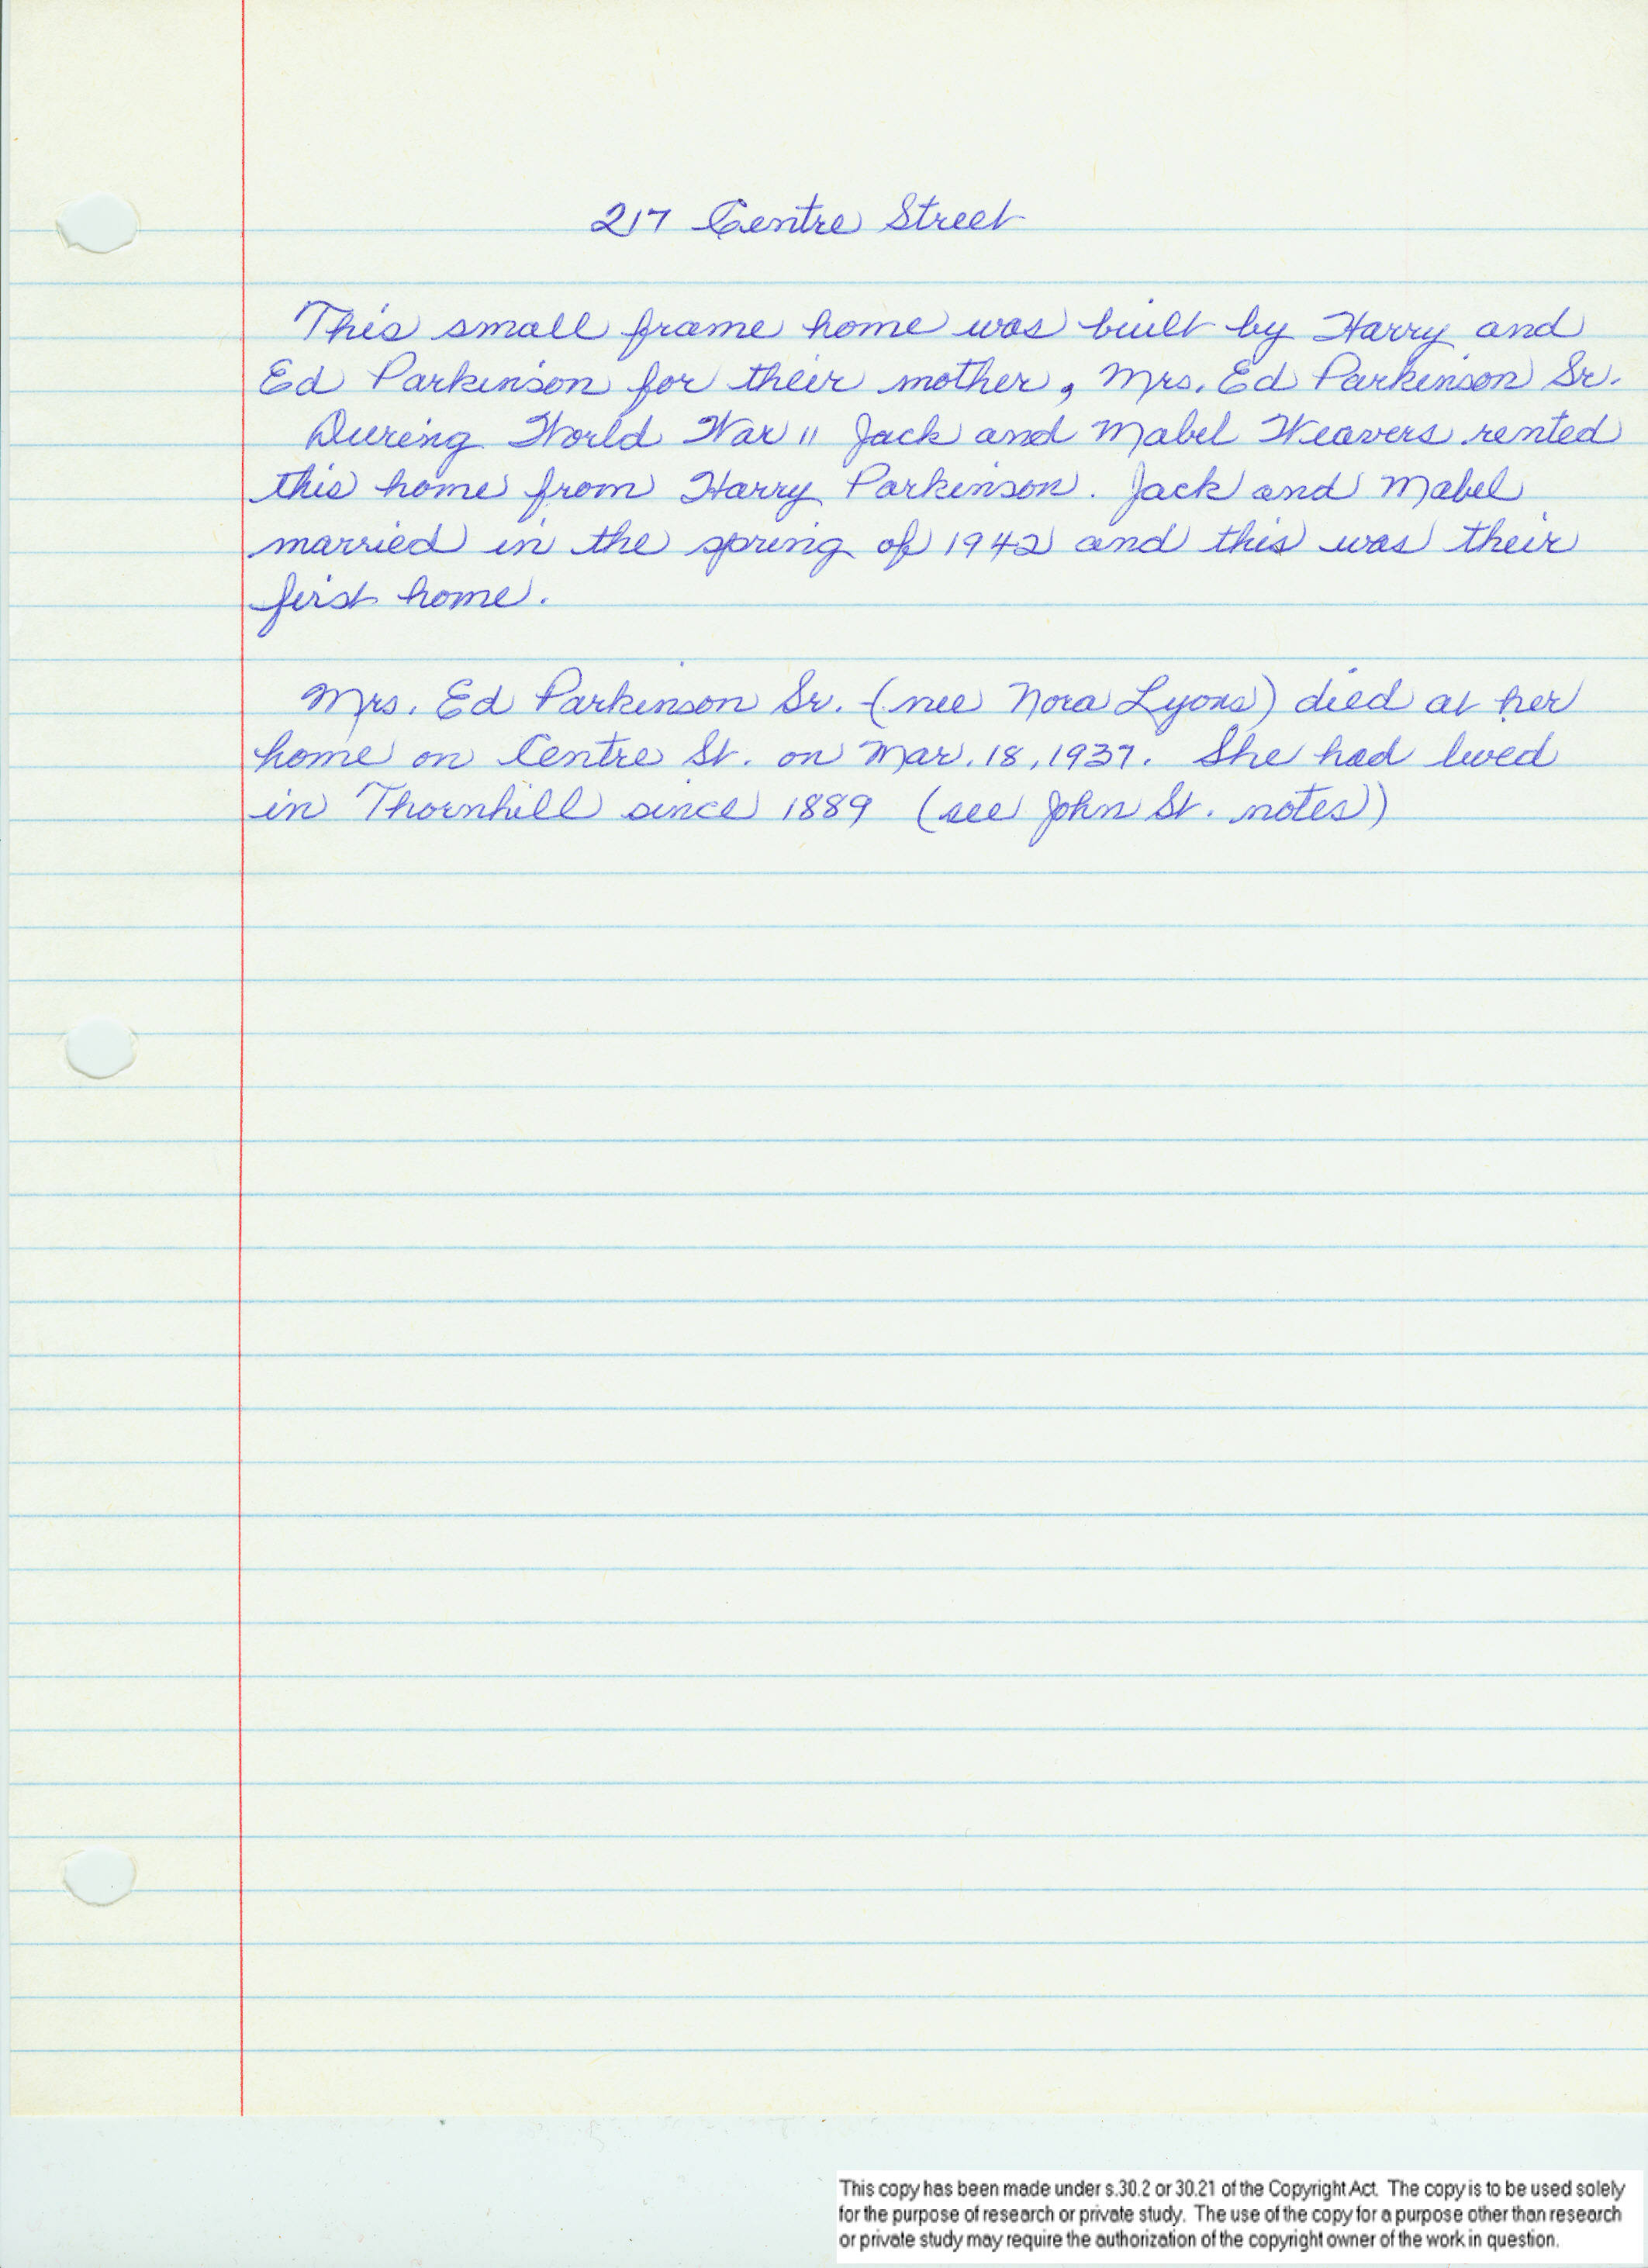 217 Centre Street
This small frame home was built by Harry and
Ed Parkinson for their mother, Mrs. Ed Parkinson Sr.
During World War 11 Jack and Mabel Weavers rented
this home from Harry Parkinson. Jack and Mabel
married in the spring of 1942 and this was their
first home.
Mrs. Ed Parkinson Sr. (nee Nora Lyons) died at her
home on Centre St. on Mar. 18, 1937. She had lived
in Thornhill since 1889 (see John St. notes)
This copy has been made under s.30.2 or 30.21 of the Copyright Act. The copy is to be used solely
for the purpose of research or private study. The use of the copy for a purpose other than research
or private study may require the authorization of the copyright owner of the work in question.